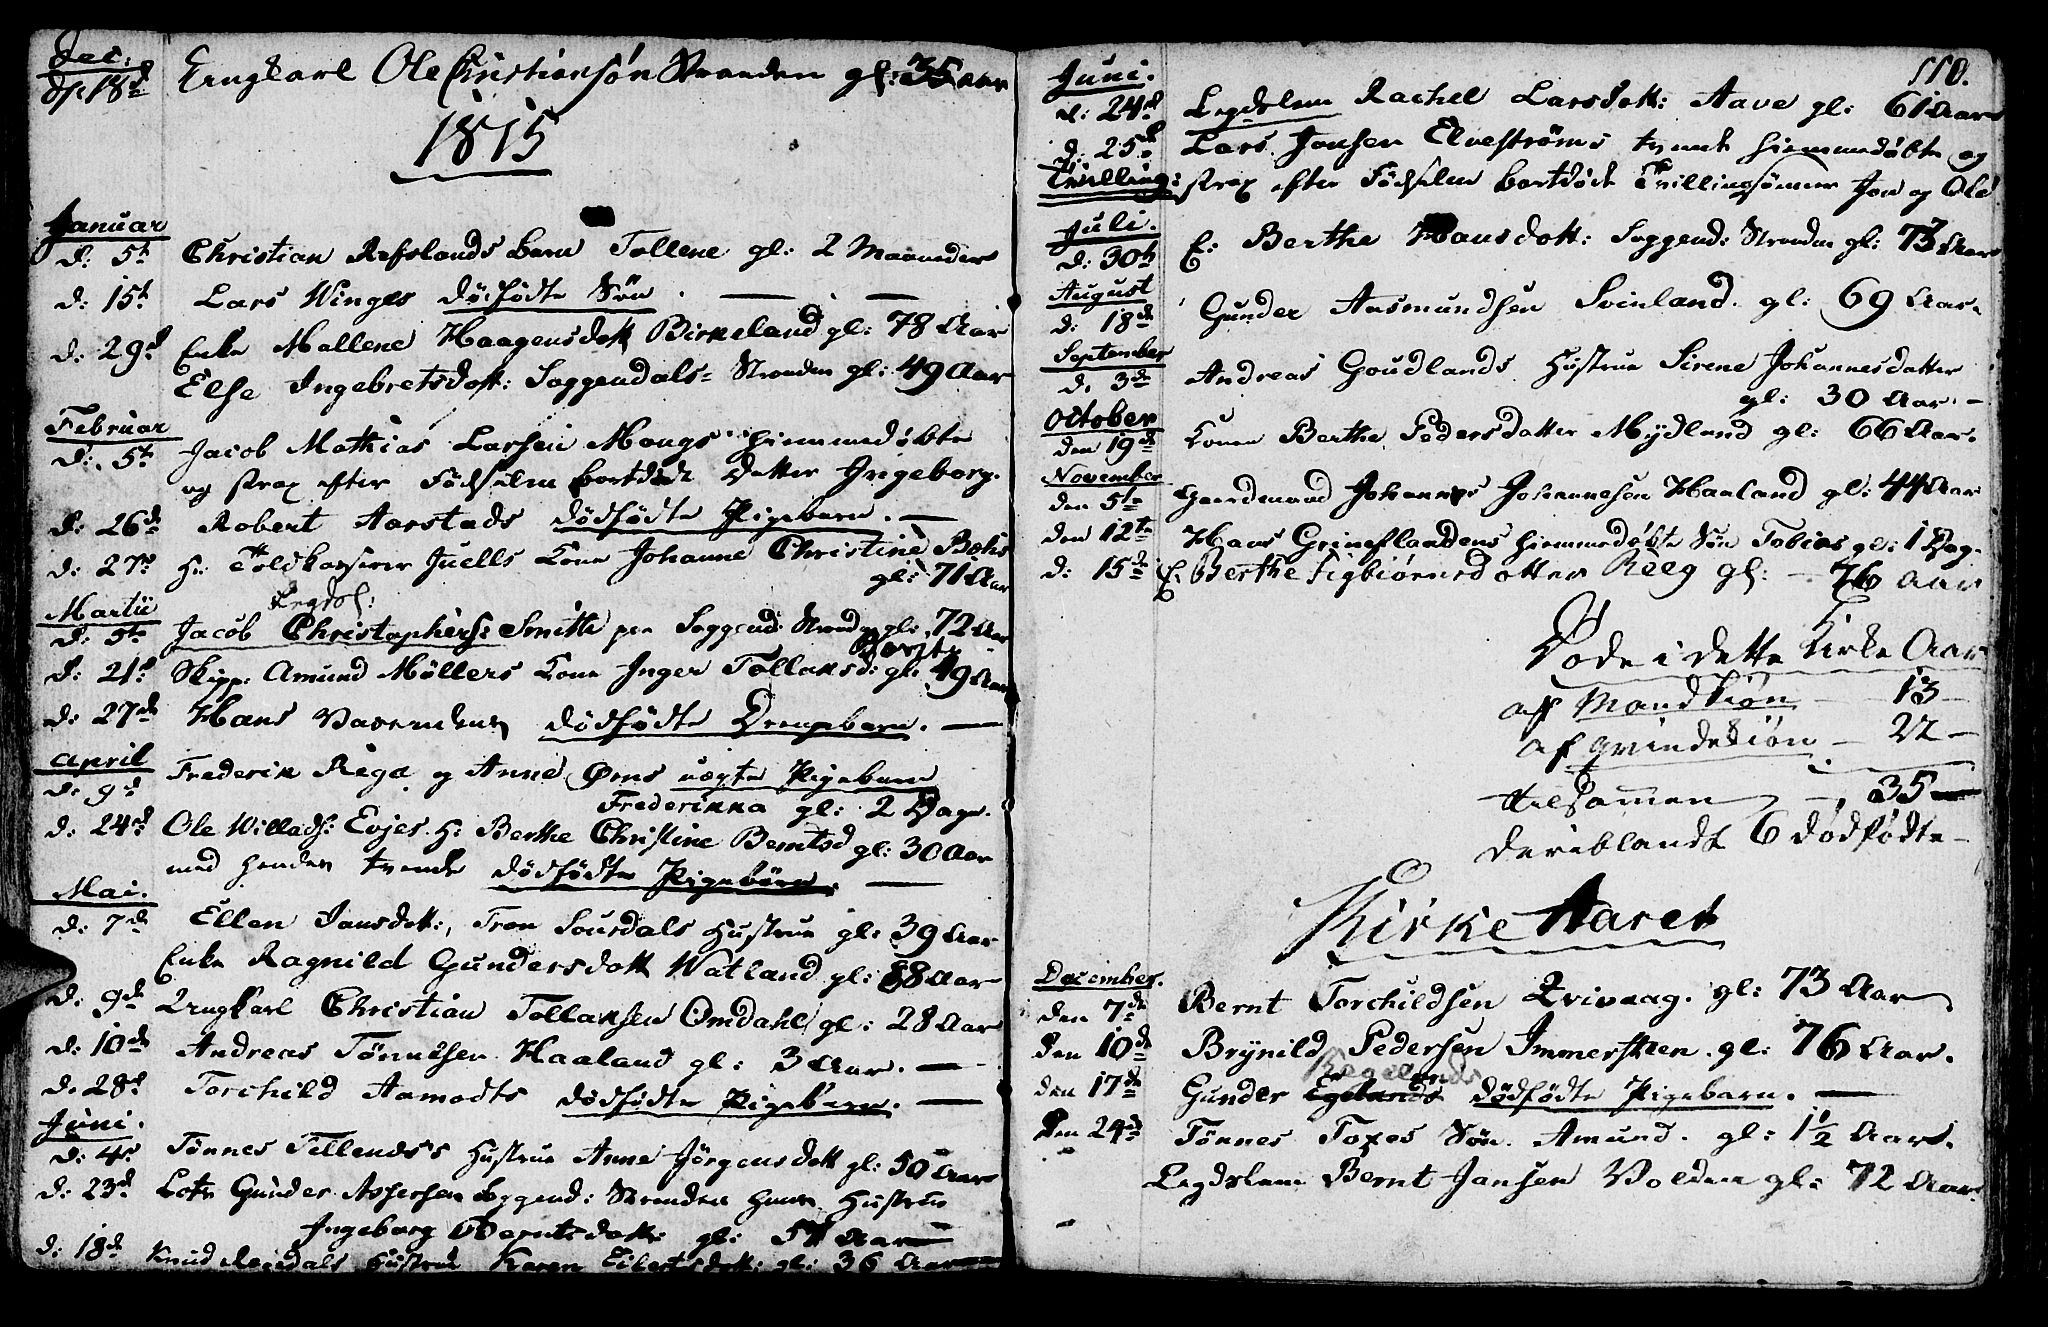 Dec:
d: 18de Ungkarl Ole Christiansøn Stranden gl: 35 Aar
1815
Januar
d: 5te Christian Refslands Barn Tollene gl: 2 Maaneder
d: 15te Lars Winges dödfödte Søn . — —
d: 29de Enke Mallene Haagensdott Birkeland gl: 78 Aar
Else Ingebretsdott: Soggendals= Stranden gl: 49 Aar
Februar
d: 5te Jacob Mathias Larsen Mongs hiemmedøbte
og strax efter Födselen bortdöde Datter Ingeborg.
d: 26de Robert Aarstads dödfödte Pigebarn. —
d: 27de Hr Toldkasserer Juells Kone Johanne Christine
gl: 71 Aar
Martii Legdsl:
d: 5te Jacob Christophers: Smith paa Soggend: Strand gl: 72 Aar
d: 21de Skipp: Amund Møllers Kone Inger Tollaksd: gl: 49 Aar
d: 27de Hans dödfödte Drengebarn. —
April
d: 9de Frederik Rega og Anne Örns uægte Pigebarn
Frederikka gl: 2 Dage.
d: 24de Ole Willads: Evjes H: Berthe Christine Berntsd gl: 30 Aar
med hendes tvende dödfödte Pigebörn. —
Mai.
d: 7de Ellen Jansdott:, Tron Sourdals Hustrue gl: 39 Aar
Enke Ragnild Gundersdott Watland gl: 88 Aar
d: 9de Ungkarl Christian Tollaksen Omdahl gl: 28 Aar
d: 10de Andreas Tönnesen Haaland gl: 3 Aar. —
d. 28de Torchild Aamodts dödfödte Pigebarn. —
Juni.
d: 4de Tønnes Tellends's Hustrue Anne Jörgensdott gl: 50 Aar
d: 23de Lods Gunder Assersen Soggend: Stranden hans Hustrue
Ingeborg Berntsdott: gl: Aar
d: 18de Knud Reqdals Hustrue Karen Eilertsdott: gl: 36 Aar
110.
Juni.
d: 24de Legdslem Rachel Larsdott: Aave gl: 61 Aar
d: 25de Lars Jonsen Elvestrøms tvende hiemmedøbte og
Tvilling: strax efter Födselen bortdöde Tvillingsönner Jon og Ole
Juli.
d: 30te E: Berthe Hansdott: Soggend: Stranden gl: 73 Aar
August
d: 18de Gunder Aasmundsen Svinland. gl: 69 Aar.
September
d. 3de Andreas Goudlands Hustrue Sirene Johannesdatter
gl: 30 Aar. —
October
den 19de Konen Berthe Pedersdatter Mydland gl: 66 Aar.
November
den 5te Gaardmand Johannes Johannesen Haaland gl: 44 Aar
den 12te Hans Grineflandens hiemmedøbte Søn Tobias gl: 1 Dag.
d: 15de E: Berthe Sigbiørnsdatter Reeg gl: — 76 Aar
Döde i dette Kirke Aar
af Mandkiøn — 13 —
af Qvindekiøn — 22 —
tilsammen — 35 —
deriblandt 6 dödfödte —
Kirke Aaret
December.
den 7de Bernt Torchildsen Qvivaag. gl: 73 Aar
den 10de Brynild Pedersen Immersteen. gl: 76 Aar.
Regelands
den 17de Gunder Egelands dödfödte Pigebarn. —
den 24de Tønnes Toxes Søn Amund. gl: 1½ Aar.
Legdslem Bernt Jansen Volden gl: 72 Aar.